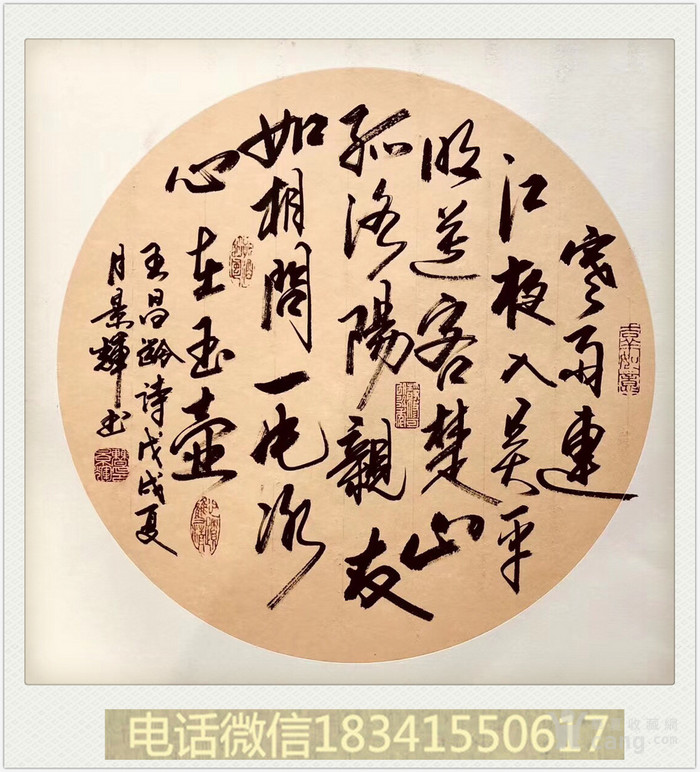 寒雨連
江夜入吴平
明送客楚山
孤洛陽親友
如相問一片冰
心在玉壺
王昌齡詩戊戌夏
月景輝书
吉羊如意
电话微信18341550617
收藏网
zang.com